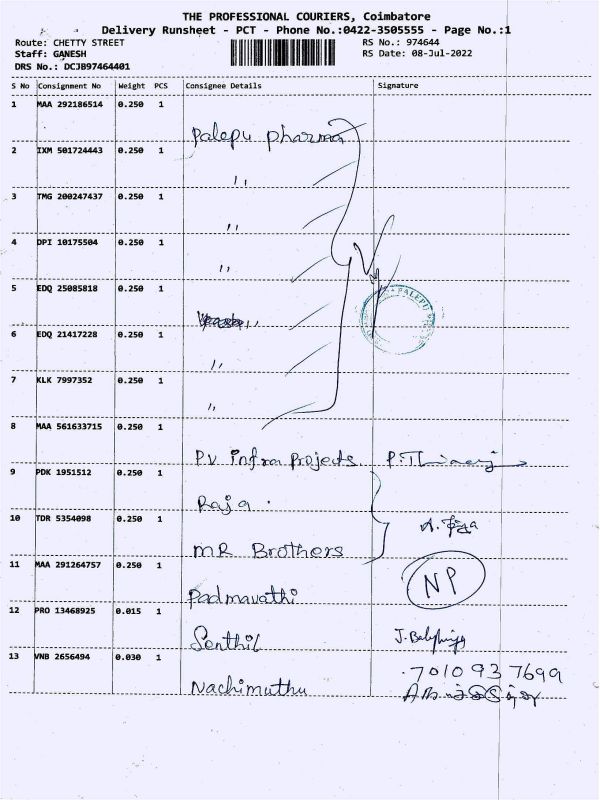 THE PROFESSIONAL COURIERS, Coimbatore
Delivery Runsheet - PCT - Phone No.:0422-3505555 - Page No.:1
Route: CHETTY STREET RS No.: 974644
Staff: GANESH RS Date: 08-Jul-2022
DRS No.: DCJB97464401
S No Consignment No Weight PCS Consignee Details Signature
1 MAA 292186514 0.250 1
Palepu pharma
2 IXM 501724443 0.250 1
,,
3 TMG 200247437 0.250 1
,,
4 DPI 10175504 0.250 1
,,
5 EDQ 25085818 0.250 1
,,
6 EDQ 21417228 0.250 1
,,
7 KLK 7997352 0.250 1
,,
8 MAA 561633715 0.250 1
PV infra projects
9 PDK 1951512 0.250 1
Raja
10 TDR 5354098 0.250 1
MR Brothers
11 MAA 291264757 0.250 1
NP
Padmavathi
12 PRO 13468925 0.015 1
Senthil
13 VNB 2656494 0.030 1
7010937699
Nachimuthu
PALEPU